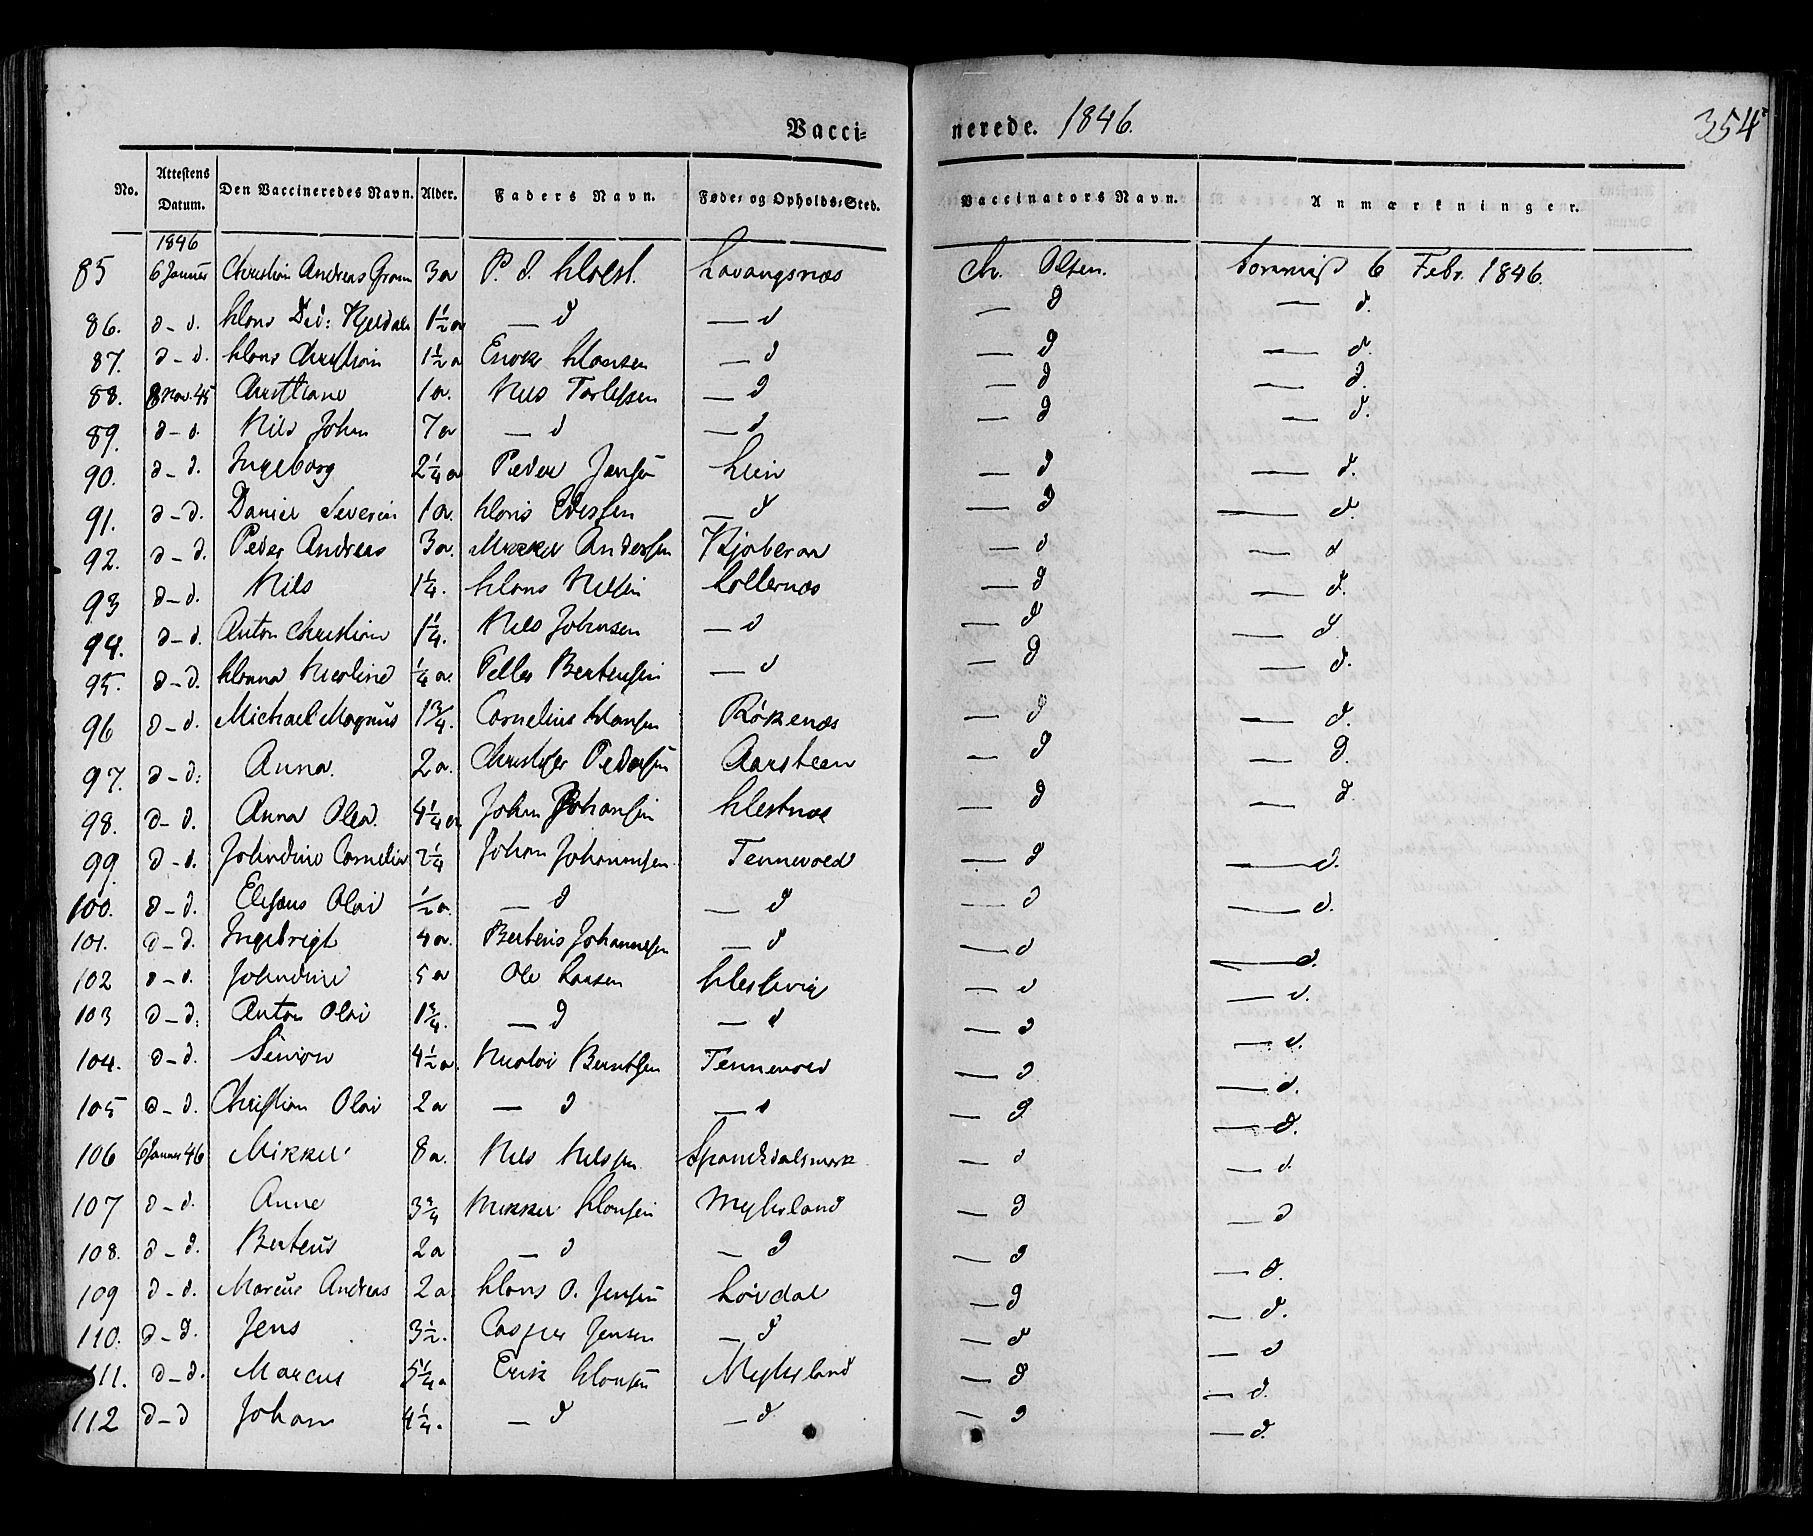 Vacci= nerede. 1846. 354
No. Attestens Datum. Den Vaccineredes Navn. Alder. Faders Navn. Føde= og Opholds=Sted. Vaccinators Navn. Anmærkninger.
1846
85 6 Januar Christian Andreas 3 a P. d. Holst. Lavangsnæs Ch. Olsen. 6 Febr. 1846.
86. d - d. Hans Did: Kjeldal 1½ a — d — d — d — d.
87. d - d. Hans Christian 1½ a Enok Hansen — d — d — d.
88. 8 Nov. 45 Christiane 1 a. Nils — d — d — d.
89. d - d. Nils Johan 7 a — d — d — d — d.
90. d - d. Ingeborg 2¼ a Peder Jensen — d — d.
91. d - d. Daniel Severin 1 a. Hans — d — d — d.
92. d - d. Peder Andreas 3 a. Mikkel Andersen — d — d
93 d - d. Nils 1¼. Hans Nilsen — d — d.
94. d - d. Anton Christian 1¼. Nils Johnsen — d — d — d
95. d - d. Hanna Nicoline ¼ a. Peller Berteusen — d — d — d.
96 d - d. Michael Magnus 1¾. Cornelius Hansen Rökenæs — d — d.
97. d - d: Anna. 2 a. Christofer Pedersen Aarsteen — d — d.
98. d - d. Anna Olea. 4¼ a John Johansen Hestnæs — d — d.
99 d - d. Johndine Cornelia 2¼ Johan Johannesen Tennevold — d — d.
100. d - d. Elesæus Olai ½ a. — d — d — d — d.
101. d - d. Ingebrigt 4 a. Berteus Johannesen — d — d — d.
102 d - d. Johndine 5 a Ole Larsen Hestvig — d — d.
103 d - d: Anton Olai 1¾. — d — d — d — d.
104. d - d. Simion 4½ a. Nicolai Berntsen Tennevold — d — d.
105 d - d. Christian Olai 2 a — d — d — d — d.
106 6 Januar 46 Mikkel 8 a. Nils Nilsen Spandsdalsmark — d — d.
107 d - d. Anne 3¾ Mikkel Hansen Myhrland — d — d
108. d - d. Berteus 2 a — d — d — d — d.
109 d - d. Marcus Andreas 2 a Hans O. Jensen Lövdal — d — d.
110. d - d. Jens 3½. Casper Jensen — d — d — d
111. d - d. Marcus 5¼ a Erik Hansen Myhrland — d — d.
112 d - d Johan 4¼. — d — d — d — d.